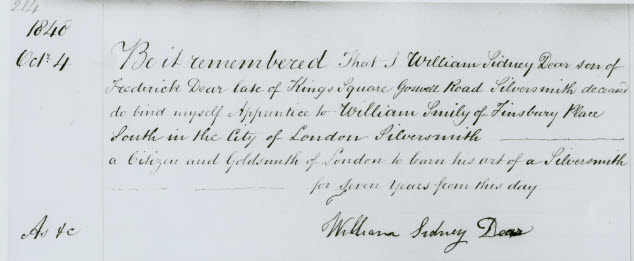 214
1840
Octr 4
Be it remembered That I William Sidney Dear son of
Frederick Dear late of Kings Square Goswell Road Silversmith deceased
do bind myself Apprentice to William Smily of Finsbury Place
South in the City of London Silversmith
a Citizen and Goldsmith of London to learn his art of a Silversmith
for Seven Years from this day
As &c
William Sidney Dear